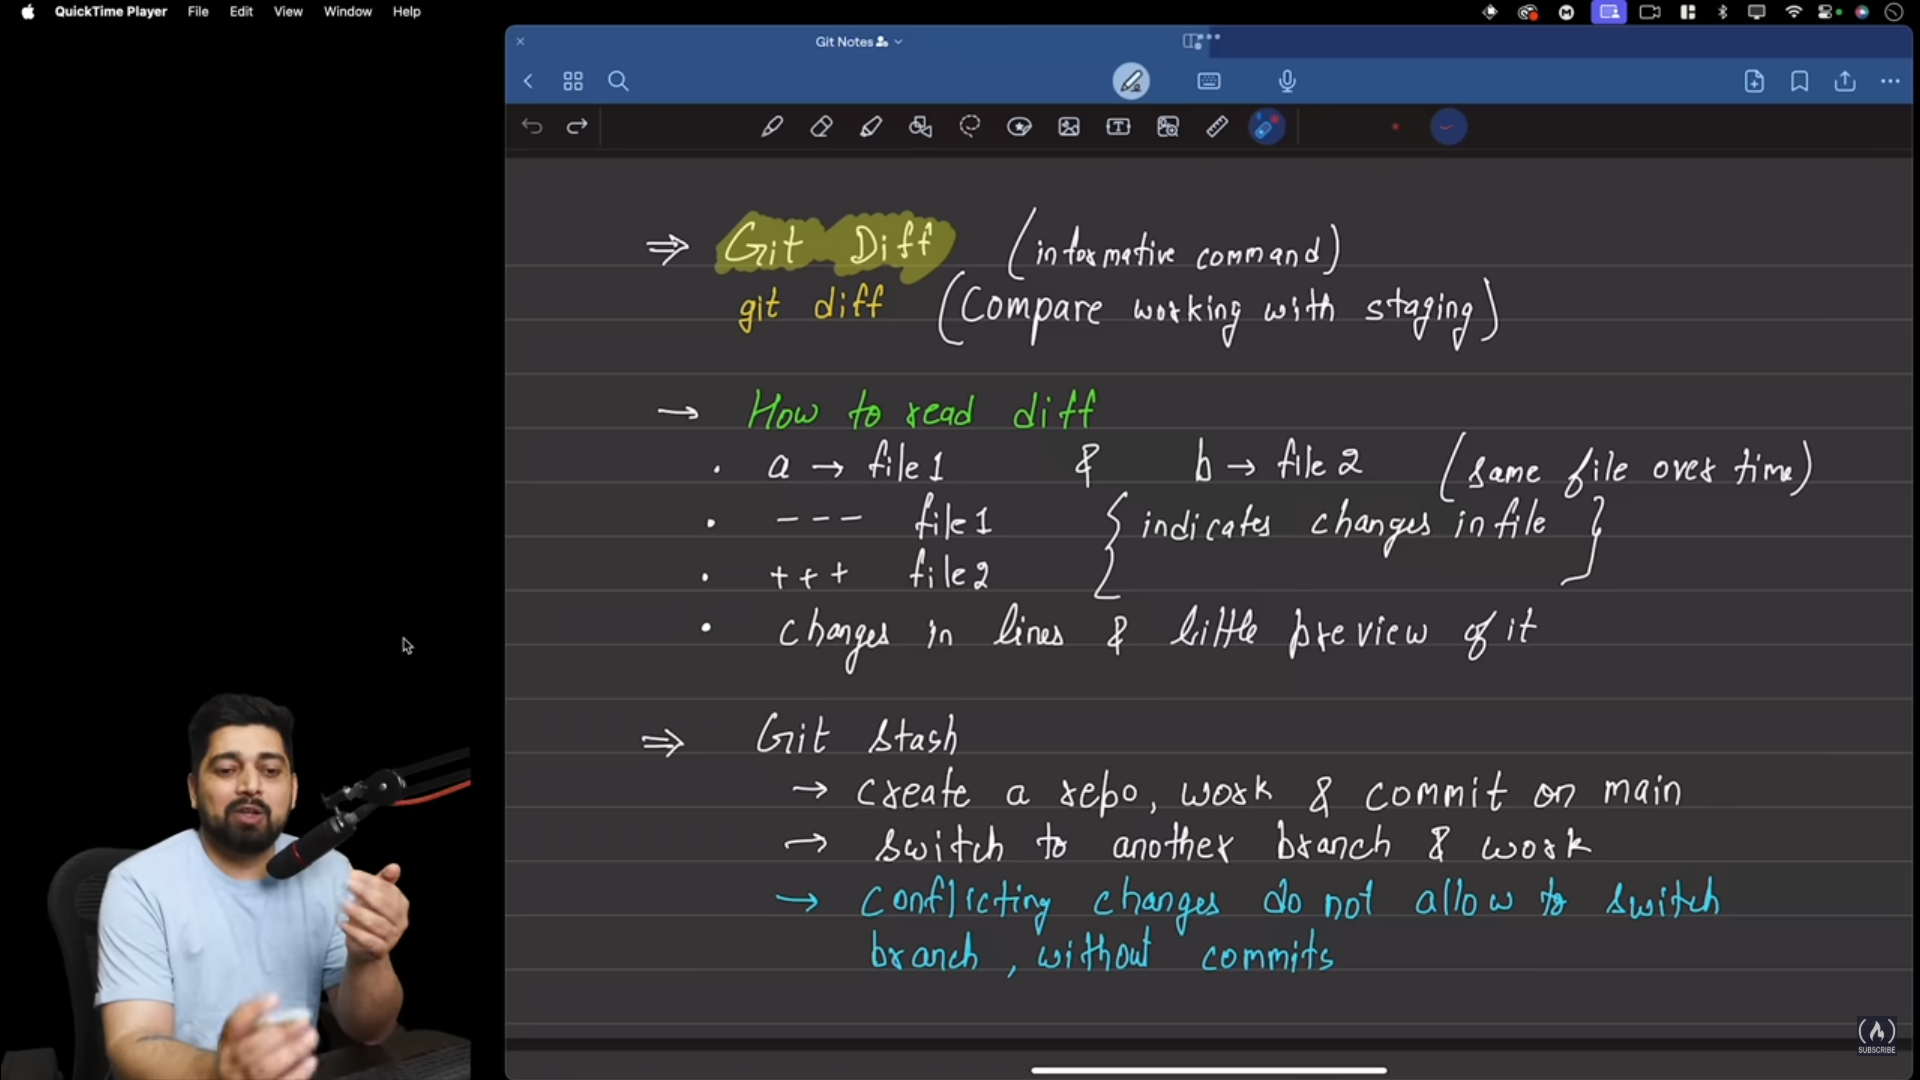 QuickTime Player File Edit View Window Help
Git Notes
⇒ Git Diff (informative command)
git diff (Compare working with staging)
→ How to read diff
· a → file 1 & b → file 2 (same file over time)
· --- file 1 { indicates changes in file }
· +++ file 2
· changes in lines & little preview of it
⇒ Git stash
→ create a repo, work & commit on main
→ switch to another branch & work
→ conflicting changes do not allow to switch
branch, without commits
SUBSCRIBE